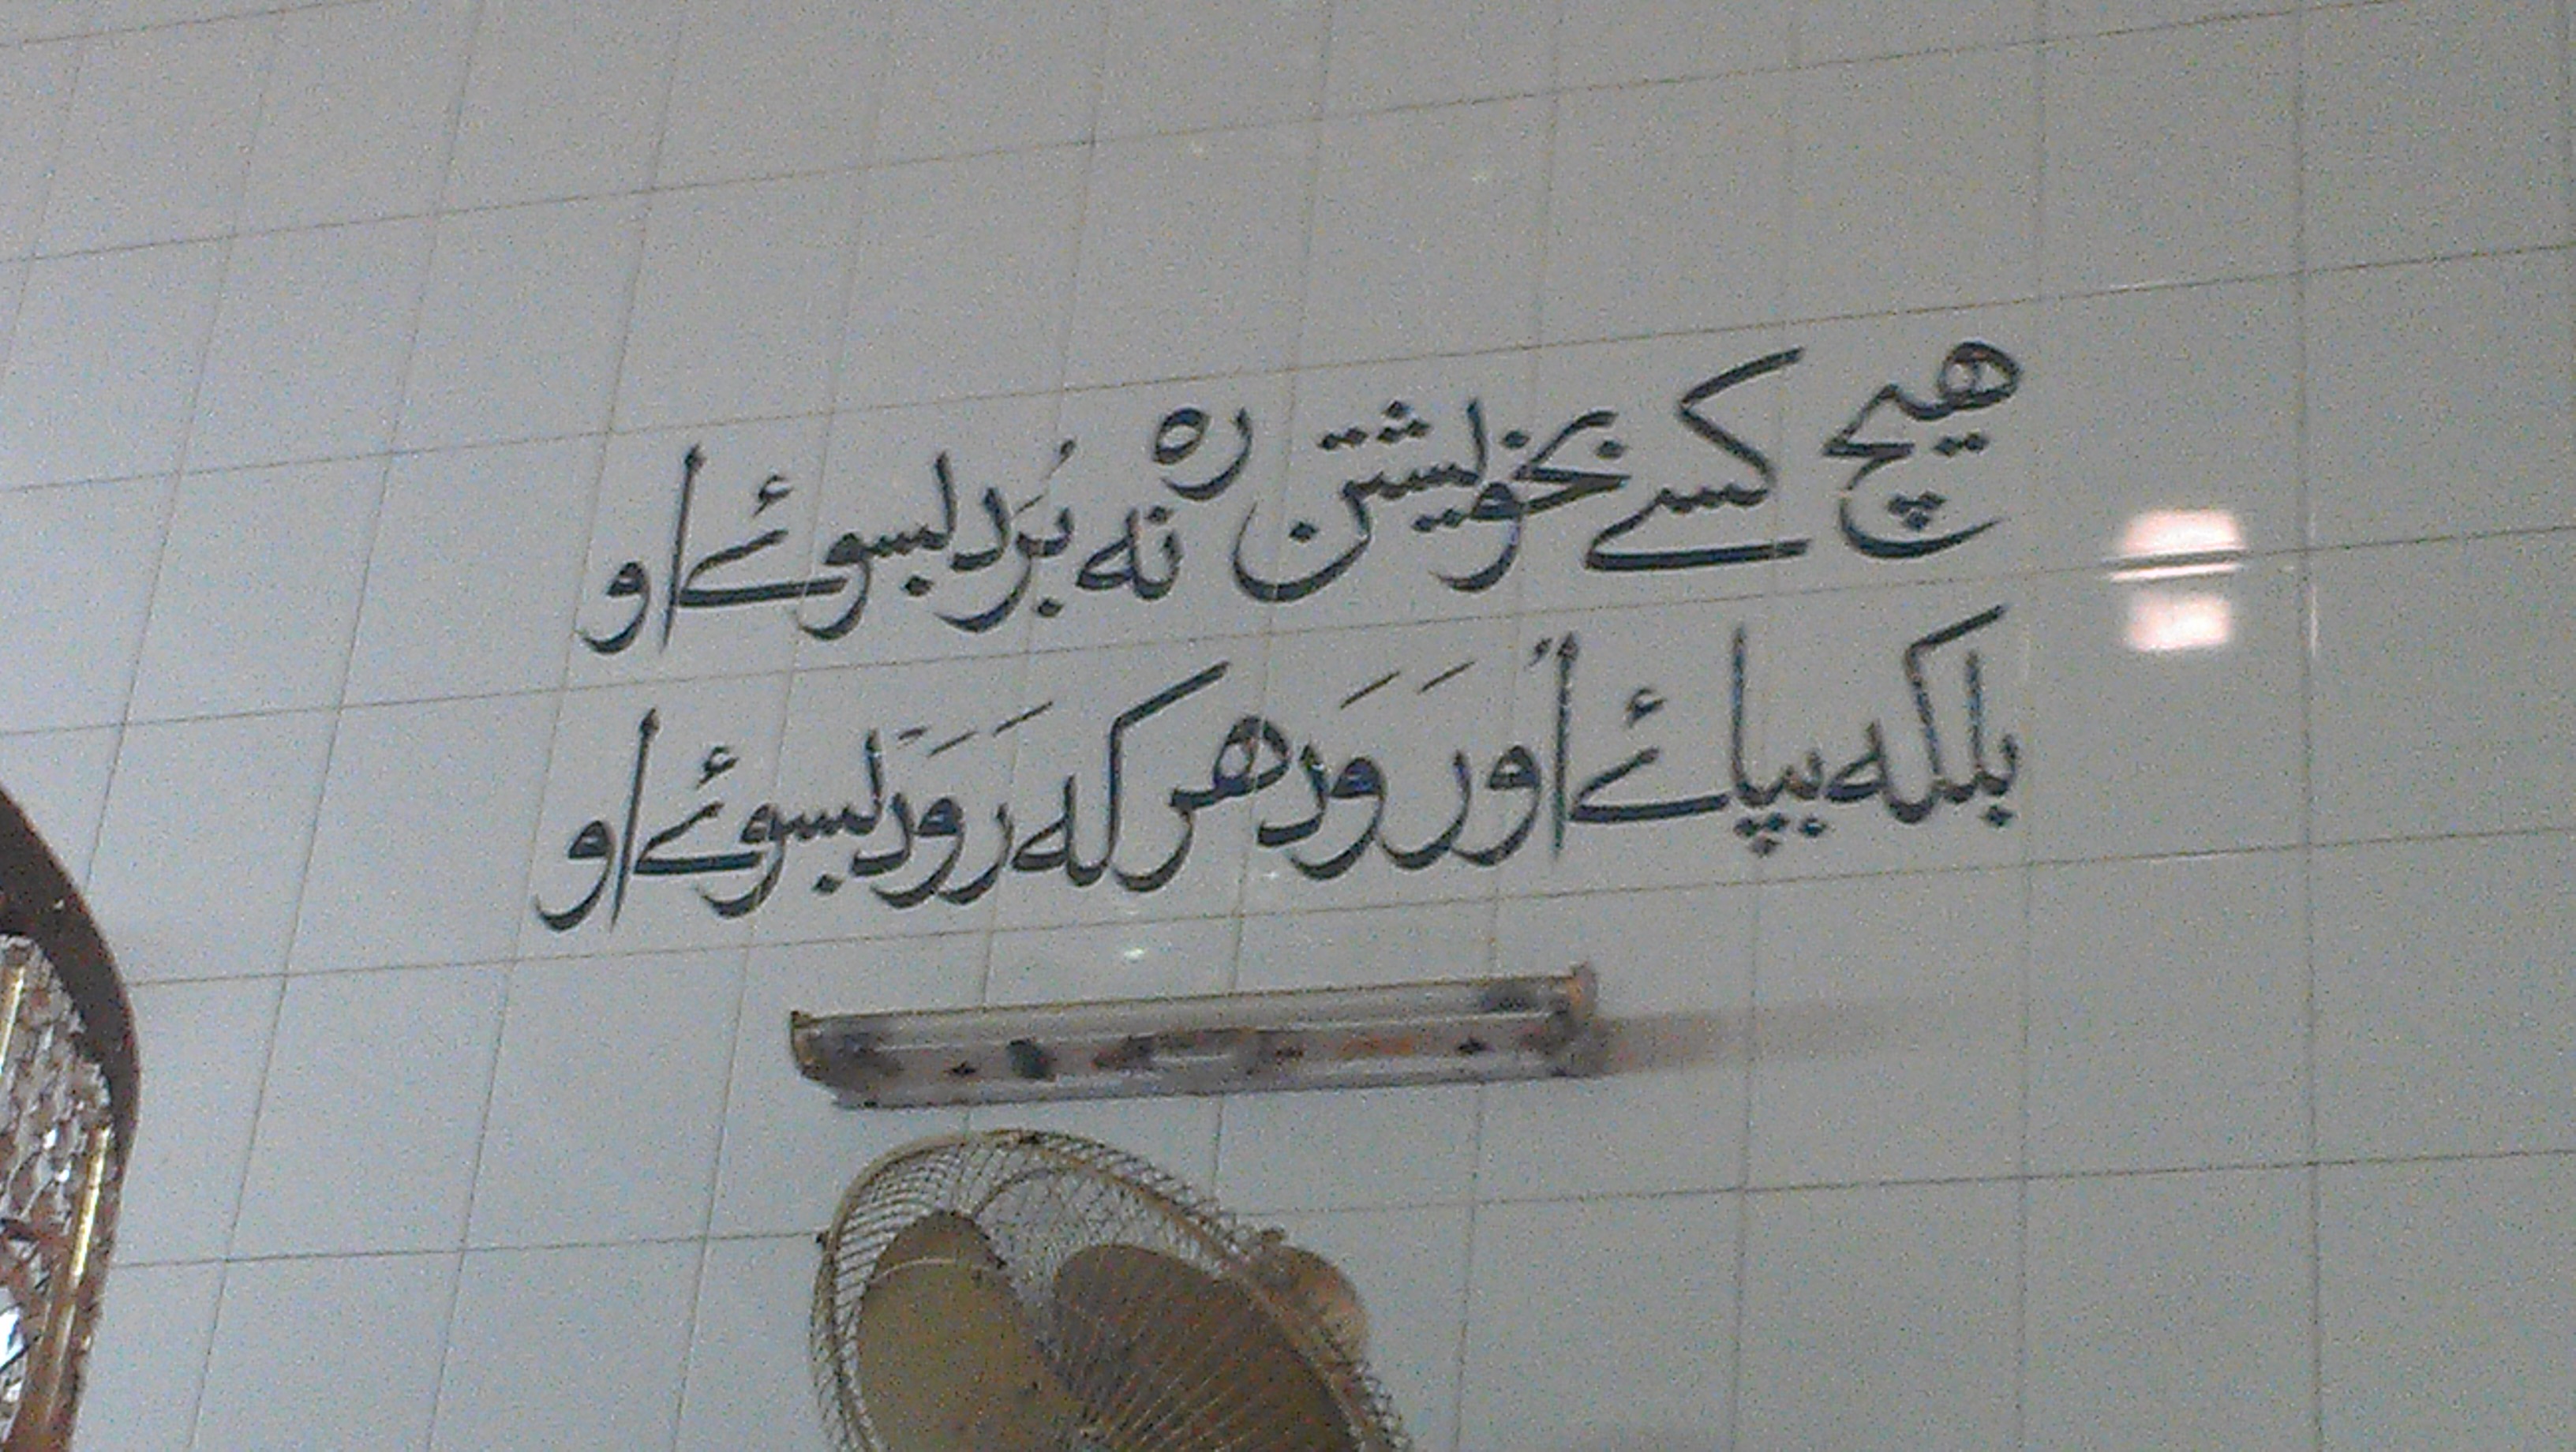 ھیچ کسے بخویشتن رہ نہ بُرَد بسوئے او
بلکہ بپائے اُو رَوَد ھر کہ رَوَد بسوئے او